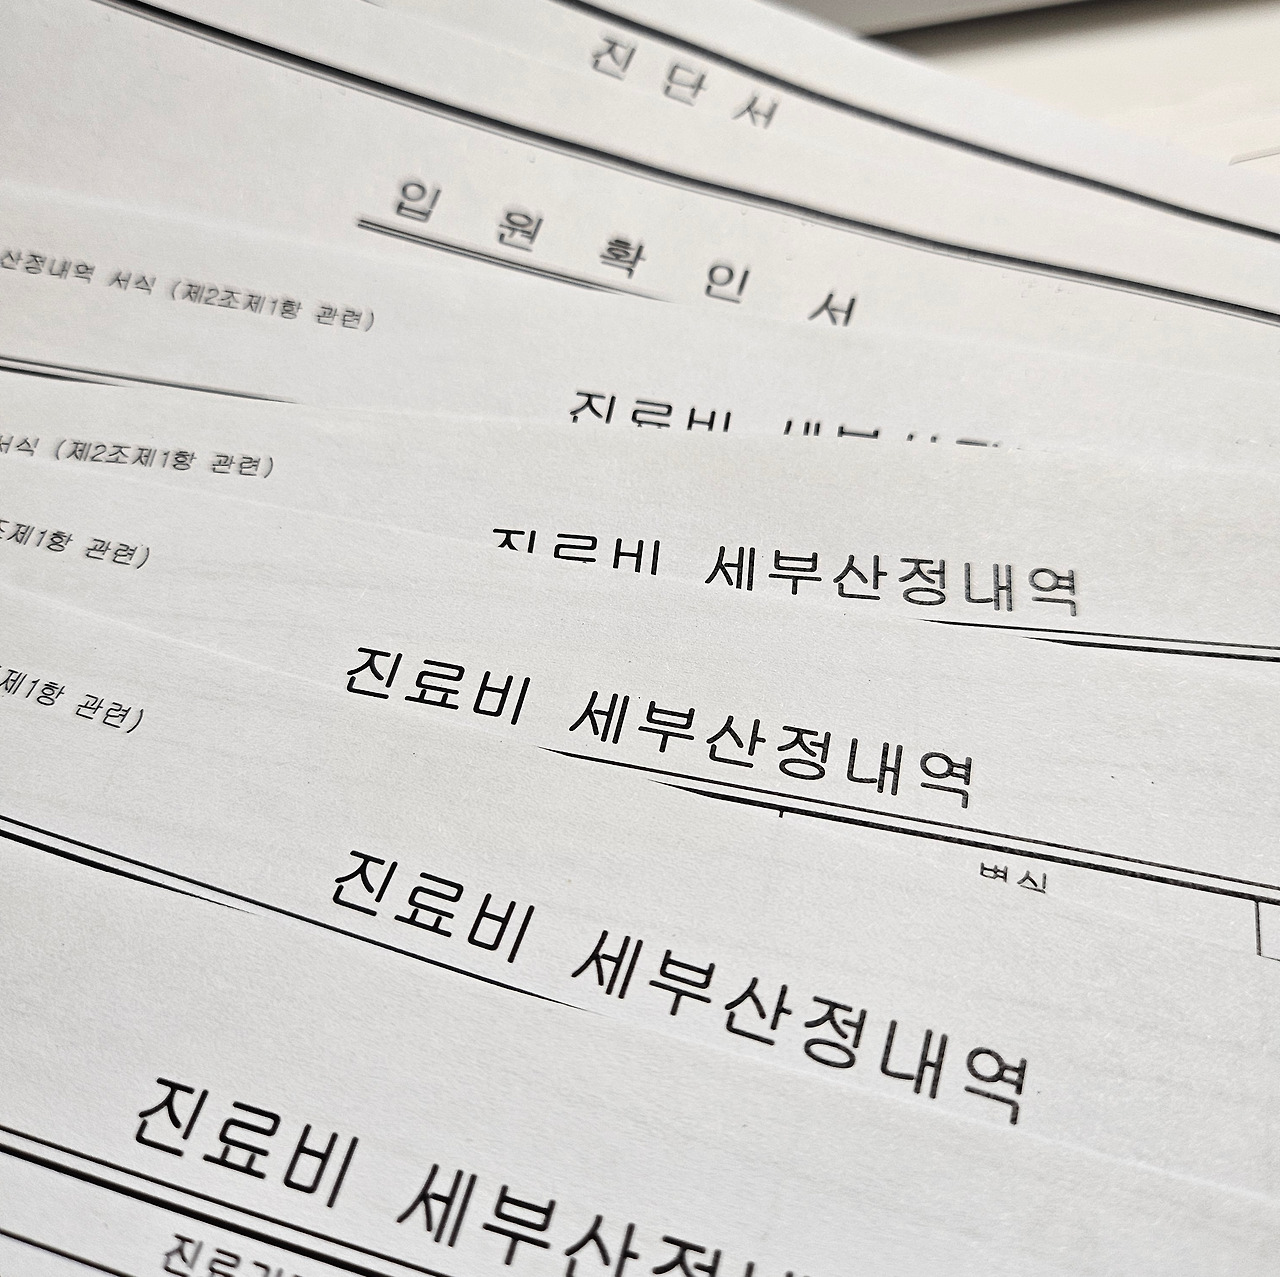 진 단 서
입 원 확 인 서
산정내역 서식 (제2조제1항 관련)
진료비
서식 (제2조제1항 관련)
진료비 세부산정내역
조제1항 관련)
진료비 세부산정내역
제1항 관련)
병실
진료비 세부산정내역
진료비 세부산정내